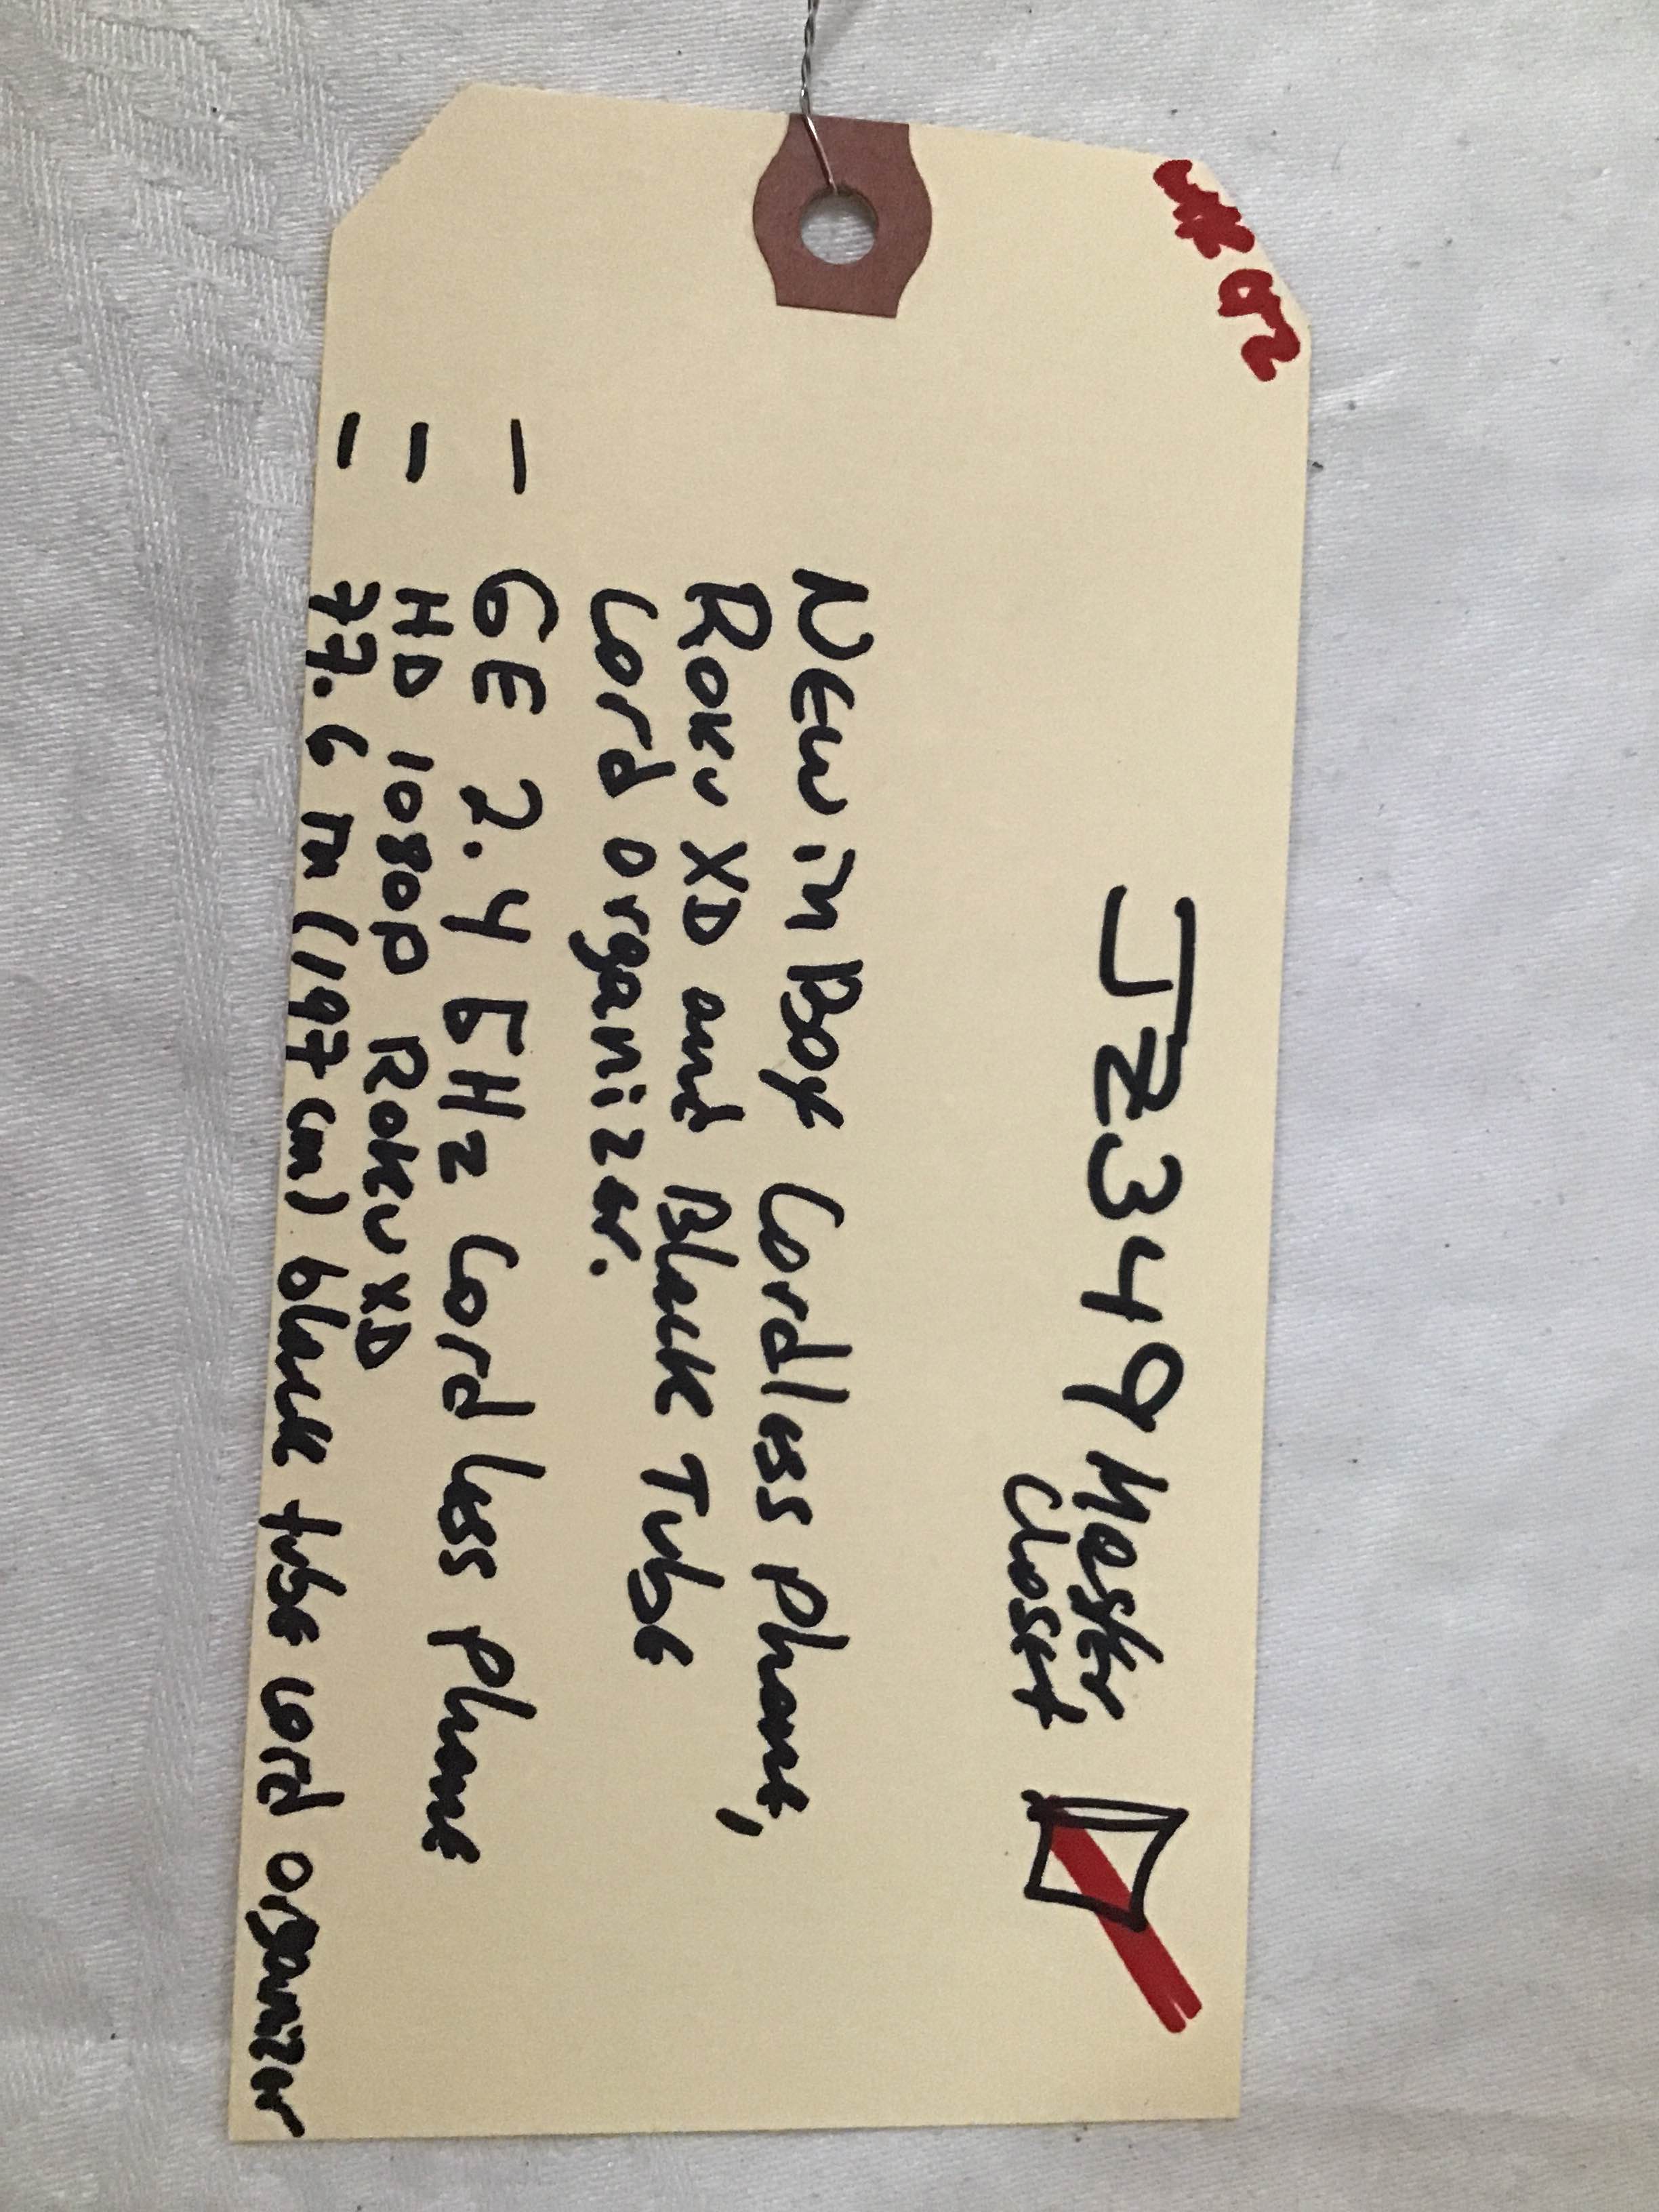 #02
JZ349 Master
Closet
New in Box Cordless Phone,
Roku XD and Black Tube
Cord organizer.
- GE 2.4 GHz Cordless Phone
- HD 1080p Roku XD
- 77.6 in (197cm) black tube cord organizer